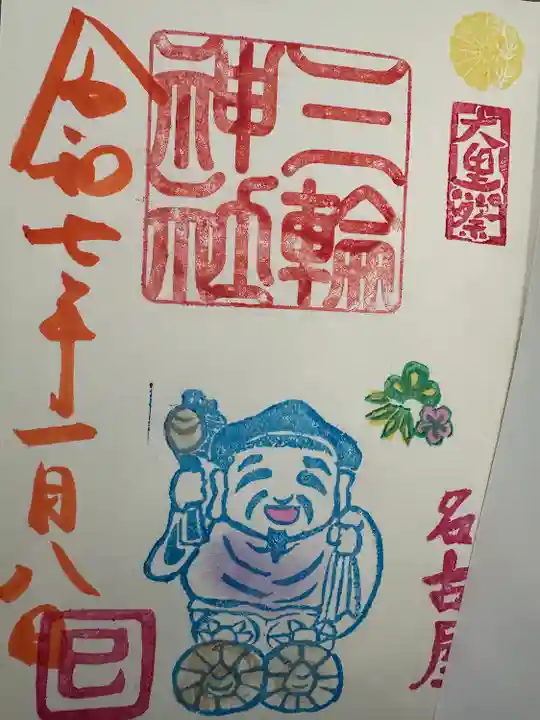 大黒祭
名古屋
三輪
神社
令和七年一月八日
巳